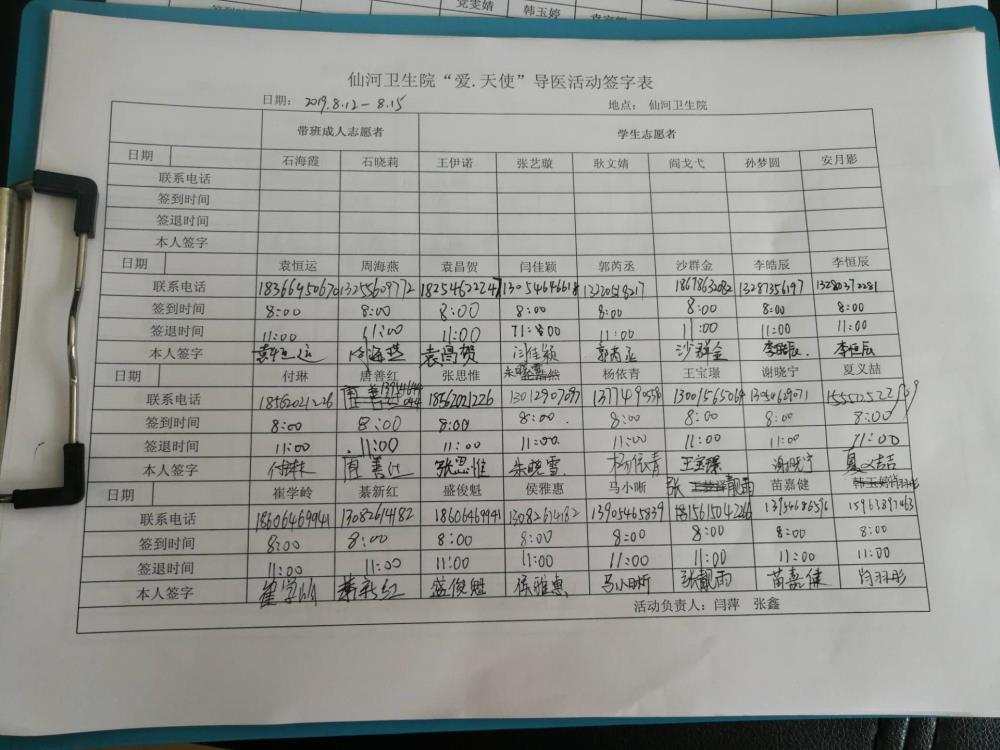 党雯婧 韩玉婷
签到时间
仙河卫生院“爱.天使”导医活动签字表
日期: 2019.8.12-8.15 地点: 仙河卫生院
带班成人志愿者 学生志愿者
日期 石海霞 石晓莉 王伊诺 张艺璇 耿文婧 阎戈弋 孙梦圆 安月影
联系电话
签到时间
签退时间
本人签字
日期 袁恒运 周海燕 袁昌贺 闫佳颖 郭芮丞 沙群金 李皓辰 李恒辰
联系电话 18366950670 13255609772 18254622247 13054646618 1322058217 18678632082 13287356197 13280372281
签到时间 8:00 8:00 8:00 8:00 8:00 8:00 8:00 8:00
签退时间 11:00 11:00 11:00 11:00 11:00 11:00 11:00 11:00
本人签字 袁恒运 周海燕 袁昌贺 闫佳颖 郭芮丞 沙群金 李皓辰 李恒辰
日期 付琳 唐善红 张思惟 朱晓雪 杨依青 王宝璟 谢晓宁 夏义喆
联系电话 18562021226 18562021226 13012907097 13001565064
签到时间 8:00 8:00 8:00 8:00 8:00 8:00 8:00 8:00
签退时间 11:00 11:00 11:00 11:00 11:00 11:00 11:00 11:00
本人签字 付琳 张思惟 朱晓雪 杨依青 王宝璟 谢晓宁 夏义喆
日期 崔学岭 綦新红 盛俊魁 侯雅惠 马小晰 张靓雨 苗嘉健
联系电话 18606469941 13082614182 18606469941 13082614182 13905465839 15963897063
签到时间 8:00 8:00 8:00 8:00 8:00 8:00 8:00 8:00
签退时间 11:00 11:00 11:00 11:00 11:00 11:00 11:00 11:00
本人签字 崔学岭 綦新红 盛俊魁 侯雅惠 马小晰 张靓雨 苗嘉健
活动负责人: 闫萍 张鑫